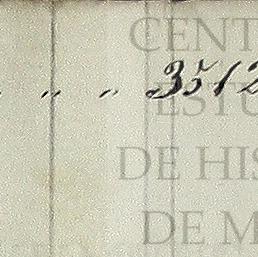 CENT
" " 3512
ESTU
DE HIS
DE M